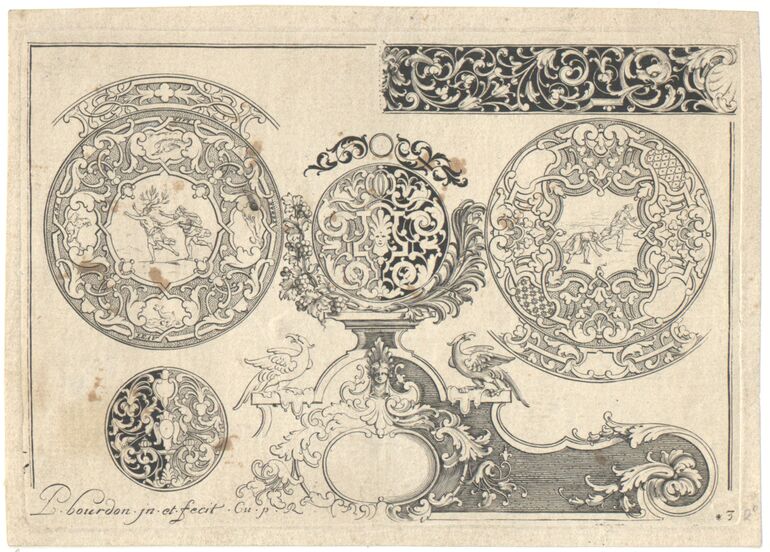 P. bourdon . jn . et . fecit . Cu . p . R
3